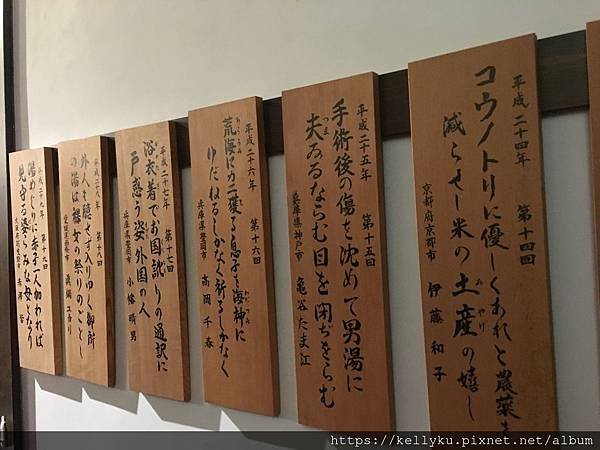 平成二十四年 第十四回
コウノトリに優しくあれと農薬を
減らせし米の土産の嬉し
みやげ
京都府京都市 伊藤和子
平成二十五年 第十五回
手術後の傷を沈めて男湯に
夫みるならむ目を閉ぢをらむ
つま
兵庫県神戸市 亀谷たま江
平成二十六年 第十六回
荒海にカニ獲る息子を海神に
ゆだねるしかなく祈るしかなく
兵庫県豊岡市 高岡千春
平成二十七年 第十七回
浴衣着てお国訛りの通訳に
戸惑う姿外国の人
兵庫県豊岡市 小幡晴男
平成二十八年 第十八回
の湯は歌女の祭りのごとし
平成二十九年 第十九回
湯めぐりに赤子一人加われば
見守る姿みな女となり
https://kellyku.pixnet.net/album